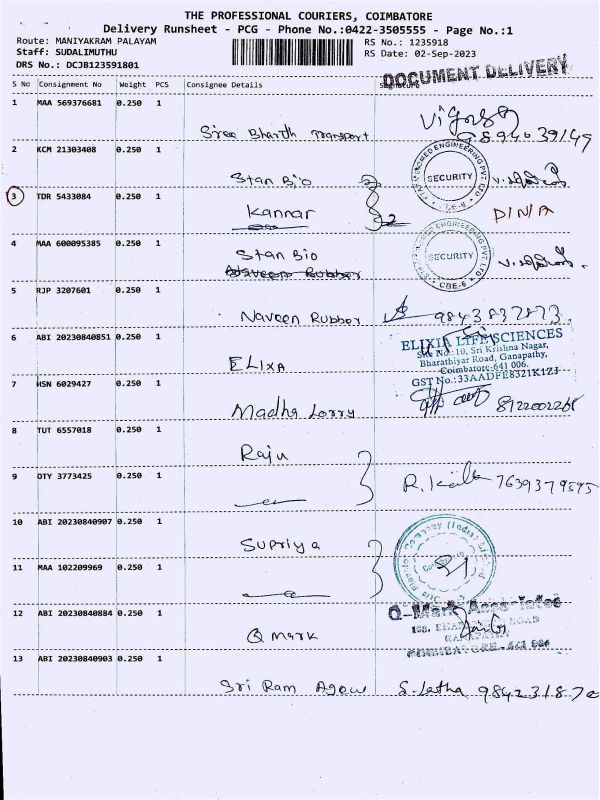 THE PROFESSIONAL COURIERS, COIMBATORE
Delivery Runsheet - PCG - Phone No.:0422-3505555 - Page No.:1
Route: MANIYAKRAM PALAYAM
RS No.: 1235918
Staff: SUDALIMUTHU
RS Date: 02-Sep-2023
DRS No.: DCJB123591801
DOCUMENT DELIVERY
S No Consignment No Weight PCS Consignee Details Signature
1 MAA 569376681 0.250 1
Sree Bharth Transport
2 KCM 21303408 0.250 1
Stan Bio
SECURITY
3 TDR 5433084 0.250 1
Kannar D/N/A
4 MAA 600095385 0.250 1
Stan Bio
SECURITY
CBE-6
Naveen Rubber
5 RJP 3207601 0.250 1
Naveen Rubber 9843837873
6 ABI 20230840851 0.250 1
ELIXA
ELIXIA LIFE SCIENCES
Site No:10, Sri Krishna Nagar,
Bharathiyar Road, Ganapathy,
Coimbatore-641 006.
GST No.:33AADFE8321K1ZJ
7 HSN 6029427 0.250 1
Madha Lorry 8122002268
8 TUT 6557018 0.250 1
Raju
9 OTY 3773425 0.250 1
7639379595
10 ABI 20230840907 0.250 1
Supriya
11 MAA 102209969 0.250 1
12 ABI 20230840884 0.250 1
Q Mark
Q-Mark Associates
COIMBATORE - 641 006
13 ABI 20230840903 0.250 1
Sri Ram Agow S. Latha